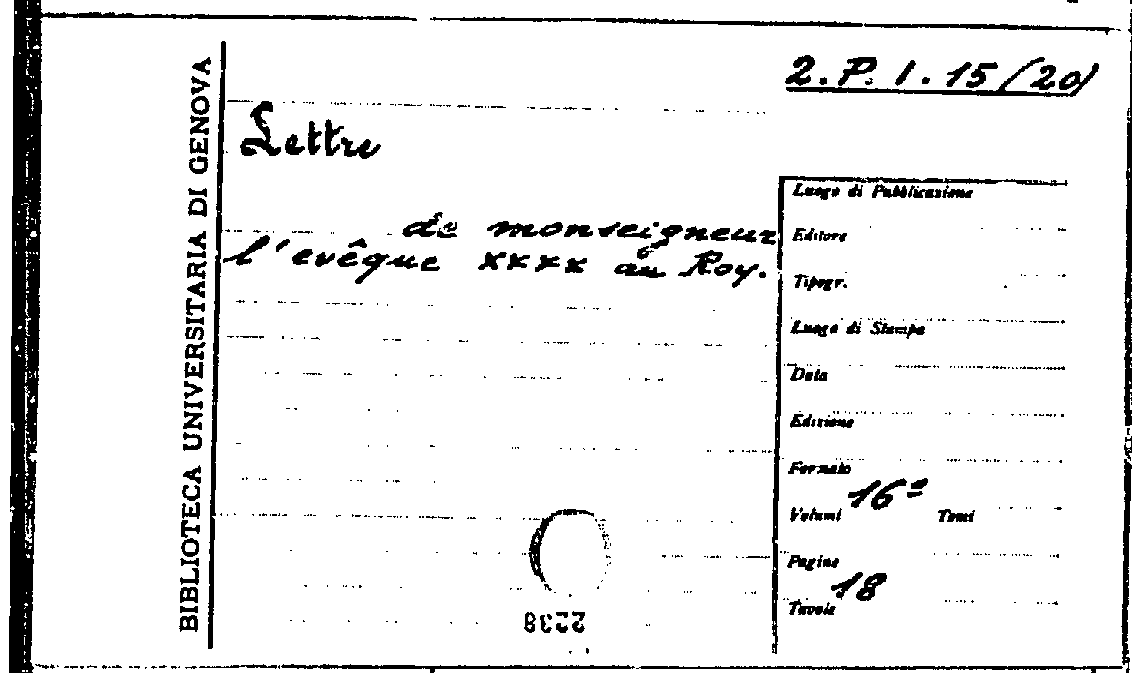 2.P.1.15(20)
BIBLIOTECA UNIVERSITARIA DI GENOVA
Lettre
de monseigneur
l'evêque xxxx au Roy.
Luogo di Pubblicazione
Editore
Tipogr.
Luogo di Stampa
Data
Edizione
Formato 16º
Volumi Tomi
Pagine 18
Tavole
2238